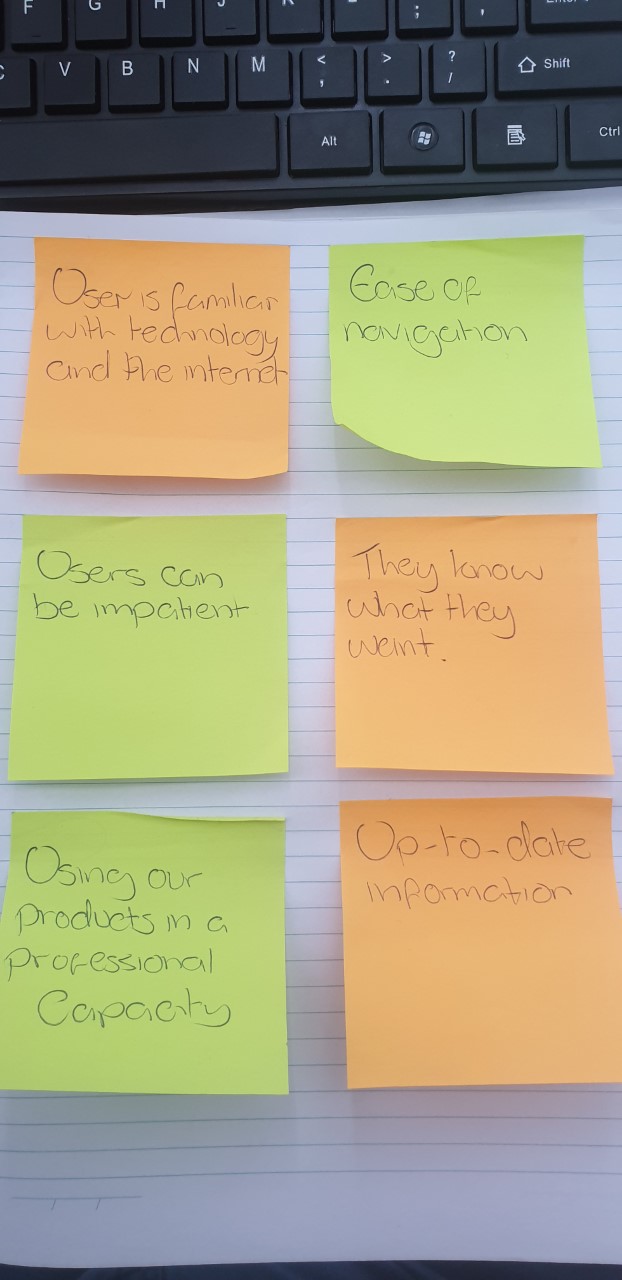 F G H J K L : ; " ' Enter
C V B N M < , > . ? / Shift
Alt Ctrl
User is familiar
with technology
and the internet
Ease of
navigation
Users can
be impatient
They know
what they
want.
Using our
products in a
professional
Capacity
Up-to-date
information